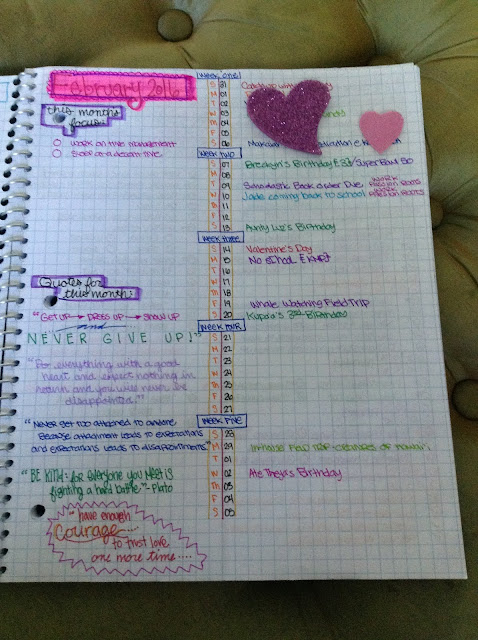 February 2016
this months
focus:
work on time management
sleep at a decent time
Quotes for
this month:
"GET UP → DRESS UP → SHOW UP
and
NEVER GIVE UP!"
"Do everything with a good
heart and expect nothing in
return and you will never be
disappointed."
"Never get too attached to anyone
because attachment leads to expectations
and expectations leads to disappointments."
"BE KIND: for everyone you meet is
fighting a hard battle" - Plato
"have enough
Courage
to trust love
one more time....
Week one
S 31
M 01
T 02
W 03
Th 04
F 05
S 06
Week two
S 07 Breeklyn's Birthday Super Bowl 50
M 08
T 09 Scholastic Book Order Due
W 10 Jade coming back to school
Th 11
F 12
S 13 Aunty Luz's Birthday
Week three
S 14 Valentine's Day
M 15 No School
T 16
W 17
Th 18
F 19 Whale Watching Field Trip
S 20 Kupaa's 3rd Birthday
Week four
S 21
M 22
T 23
W 24
Th 25
F 26
S 27
Week five
S 28
M 29 In-house Field Trip - Creatures of Hawaii
T 01
W 02 Ate Theya's Birthday
Th 03
F 04
S 05